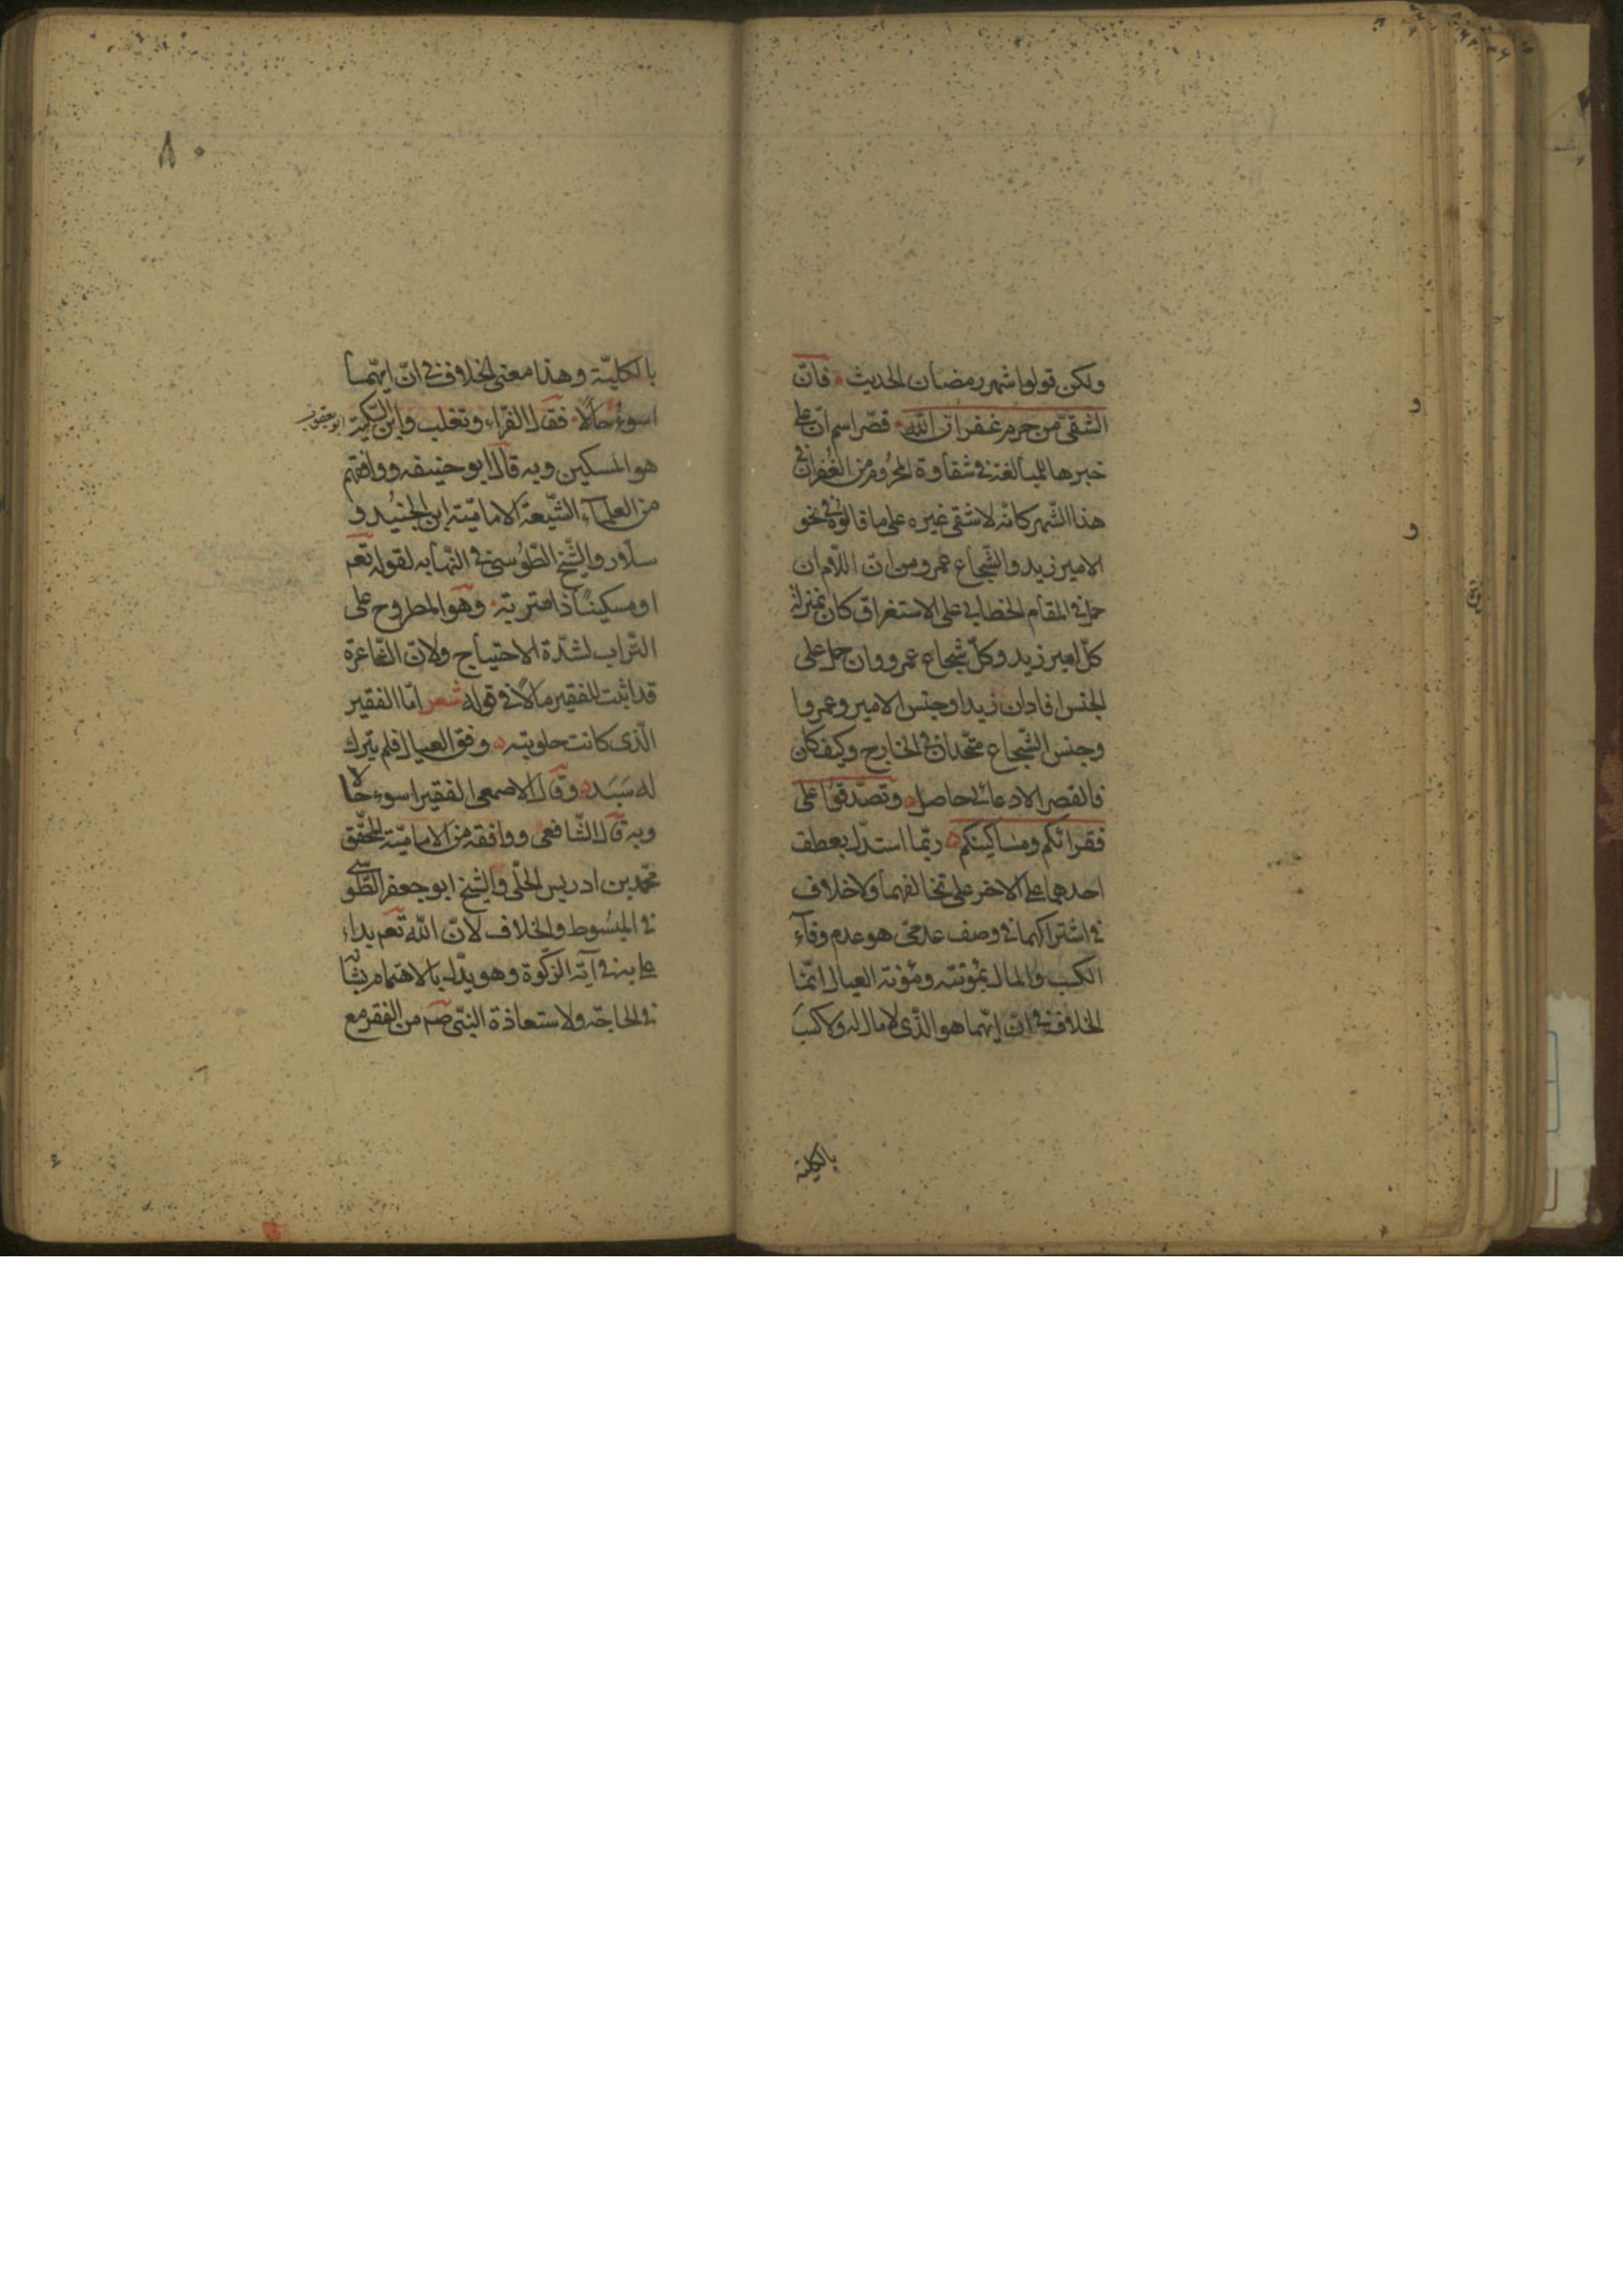 ولكن قولوا شهر رمضان الحديث فانّ
الشقىّ من حرم غفران اللّه قصّر اسم انّ على
خبرها للمبالغة فى شقاوة المحروم من الغفران فى
هذا الشّهر كانّه لا شقى غيره على ما قالوه فى نحو
الامير زيد والشّجاع عمرو من انّ اللّام ان
حمل فى المقام الخطابى على الاستغراق كان بمنزلة
كلّ امير زيد وكلّ شجاع عمرو وان حمل على
الجنس افاد ان زيدا وجنس الامير وعمروا
وجنس الشّجاع متّحدان فى الخارج وكيف كان
فالقصر الادعائى حاصل وتصدّقوا على
فقرائكم ومساكينكم ربّما استدلّ بعطف
احدهما على الاخر على تخالفهما ولا خلاف
فى اشتراكهما فى وصف عدمىّ هو عدم وفآء
الكسب والمال بمؤنته ومؤنة العيال انّما
الخلاف فى انّ ايّهما هو الذّى لا مال له ولا كسب
بالكلية
٨٠
بالكليّة وهذا معنى الخلاف فى انّ ايّهما
اسوء حالًا فقال الفرّاء وتغلب وابن السّكيت ابو يعقوب
هو المسكين وبه قال ابو حنيفه ووافقهم
من العلمآء الشّيعة الاماميّة ابن الجنيد و
سلّار والشّيخ الطّوسى فى النّهايه لقوله تعم
او مسكينًا ذا متربة وهو المطروح على
التّراب لشدّة الاحتياج ولانّ الشّاعرة
قد اثبت للفقير مالًا فى قوله شعر امّا الفقير
الّذى كانت حلوبته وفق العيال فلم يترك
له سَبَد وقال الاصمعى الفقير اسوء حالًا
وبه قال الشّافعى ووافقه من الاماميّة المحقّق
محمّد بن ادريس الحلّى والشّيخ ابو جعفر الطّوسى
فى المبسوط والخلاف لانّ اللّه تعم بداء
به فى آية الزّكوة وهو يدّل بالاهتمام بشانه
فى الحاجّة ولاستعاذة النبّى صم من الفقر مع